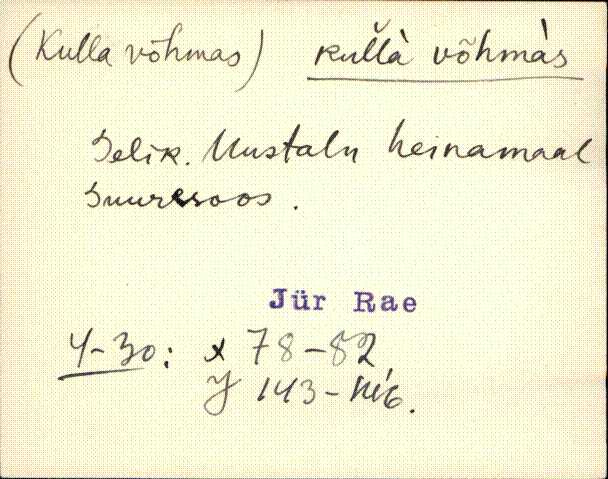 (Kulla võhmas) kulla võhmas
Selik. Uustalu heinamaal
Suuresoos.
Jür Rae
4-30: x 78-82
y 143-146.